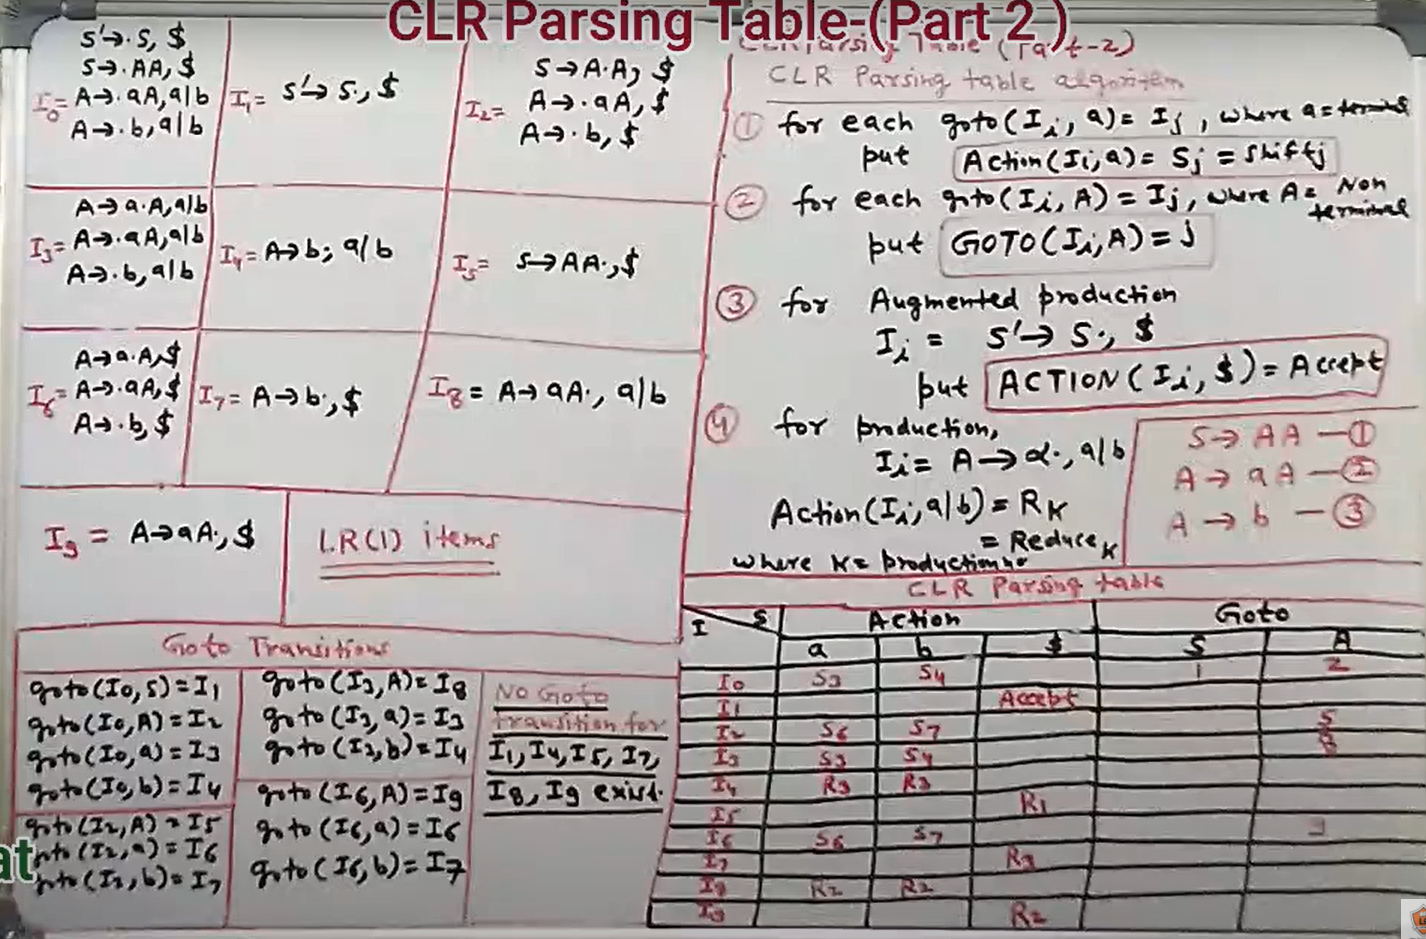 CLR Parsing Table-(Part 2 )
S'→.S, $
S→.AA, $
I0= A→.aA, a|b
A→.b, a|b
I1= S'→S., $
S→A.A, $
I2= A→.aA, $
A→.b, $
A→a.A, a|b
I3= A→.aA, a|b
A→.b, a|b
I4= A→b; a|b
I5= S→AA., $
A→a.A, $
I6= A→.aA, $
A→.b, $
I7= A→b., $
I8= A→aA., a|b
I9= A→aA., $
LR(1) items
Goto Transitions
goto(I0,S)=I1
goto(I0,A)=I2
goto(I0,a)=I3
goto(I0,b)=I4
goto(I2,A)=I5
goto(I2,a)=I6
goto(I2,b)=I7
goto(I3,A)=I8
goto(I3,a)=I3
goto(I3,b)=I4
goto(I6,A)=I9
goto(I6,a)=I6
goto(I6,b)=I7
No Goto
transition for
I1, I4, I5, I7,
I8, I9 exist.
at
CLR Parsing Table (Part-2)
CLR Parsing table algoritem
① for each goto(Ii, a)= Ij, where a=terminal
put Action(Ii,a)= Sj = shiftj
② for each goto(Ii, A)= Ij, where A= Non terminal
put GOTO(Ii,A)=j
③ for Augmented production
Ii = S'→ S., $
put ACTION(Ii,$)=Accept
④ for production,
Ii= A→α., a|b
Action(Ii, a|b)=RK
= ReduceK
where K= production no
S→ AA —①
A→ aA —②
A→ b —③
CLR Parsing table
I S Action Goto
a b $ S A
I0 S3 S4 1 2
I1 Accept
I2 S6 S7 5
I3 S3 S4 8
I4 R3 R3
I5 R1
I6 S6 S7
I7 R3
I8 R2 R2
I9 R2